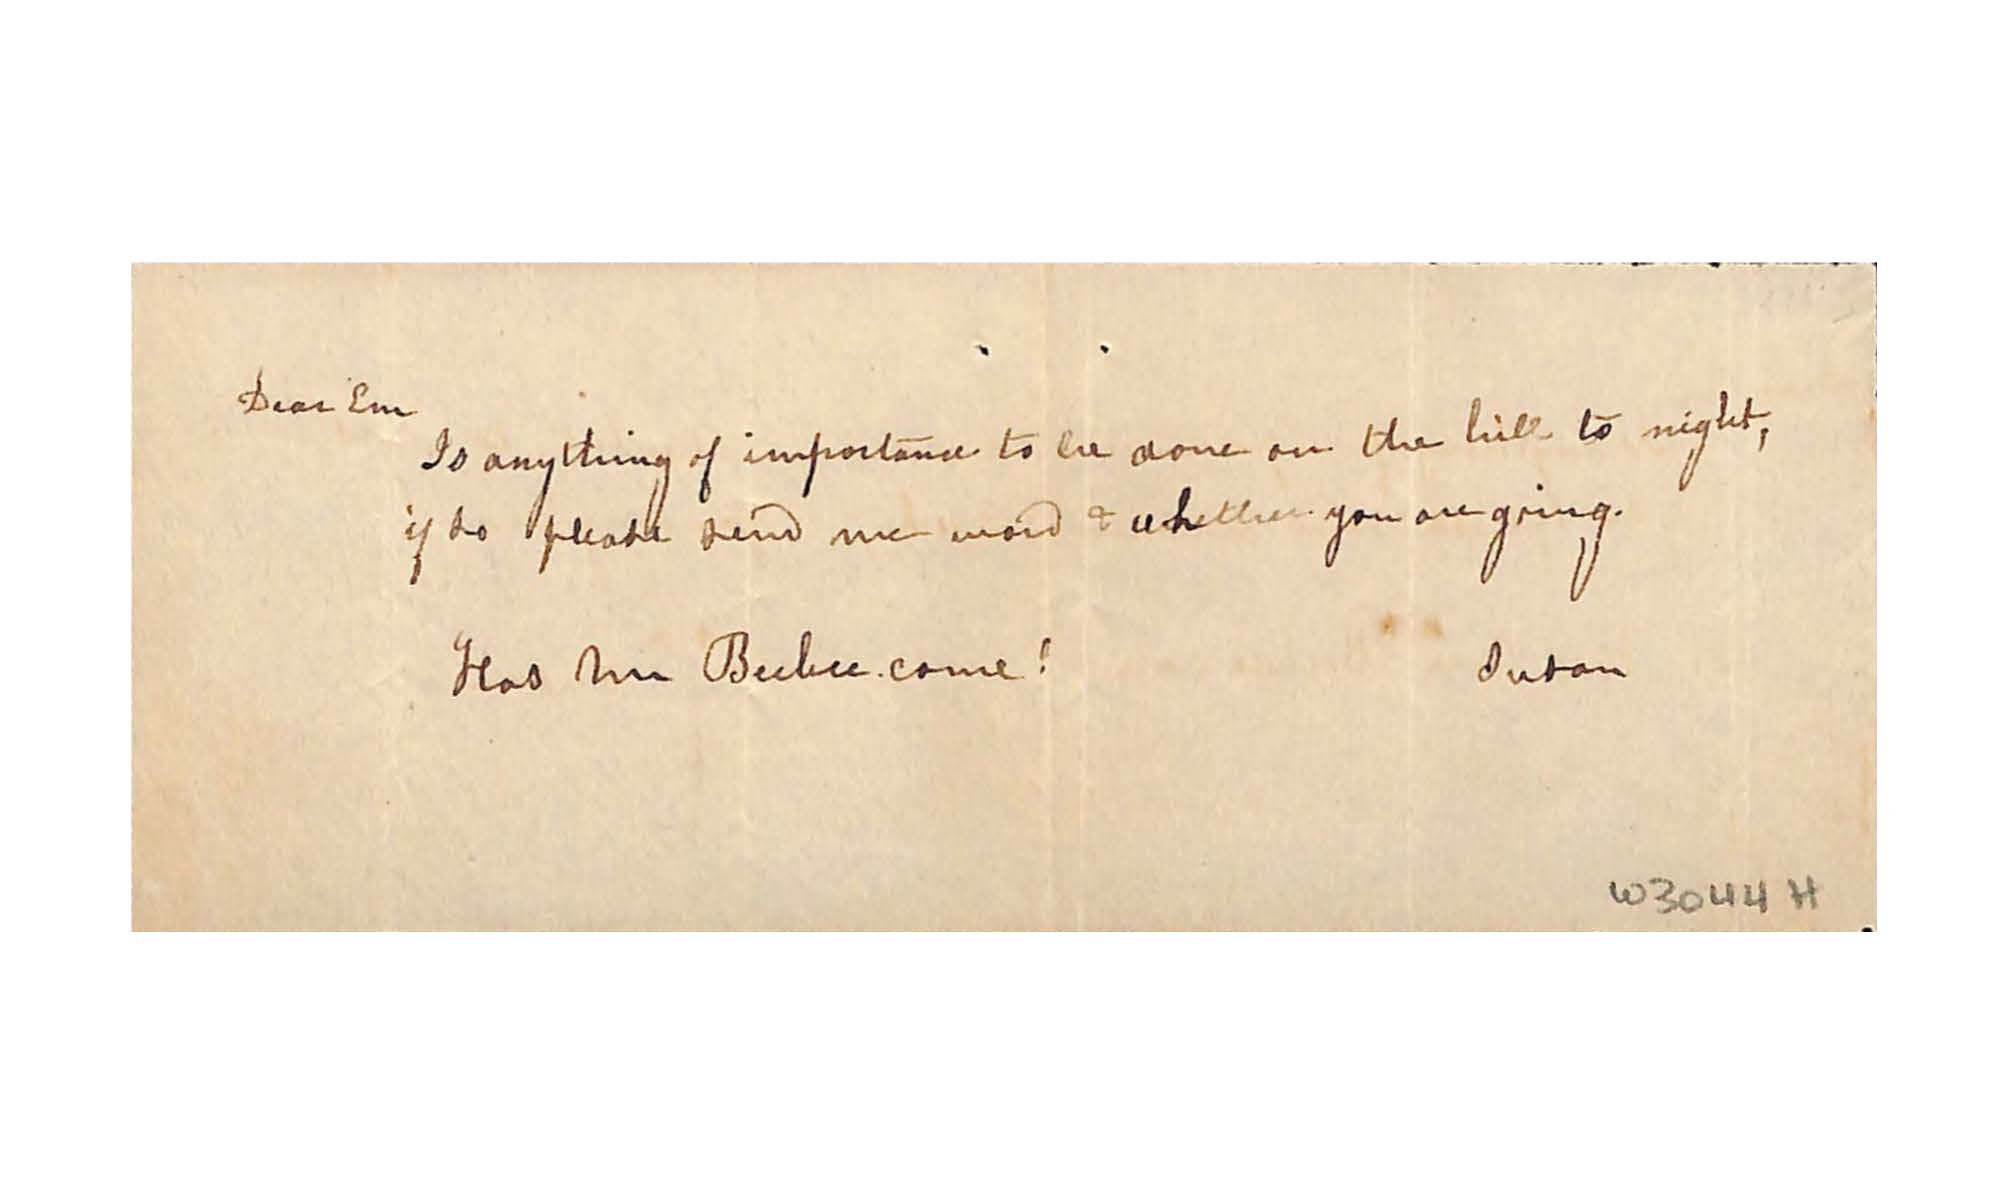 Dear Em
Is anything of importance to be done on the hill to night,
if so please send me word & whether you are going.
Has Mr Beebee come!
Susan
W3044 H